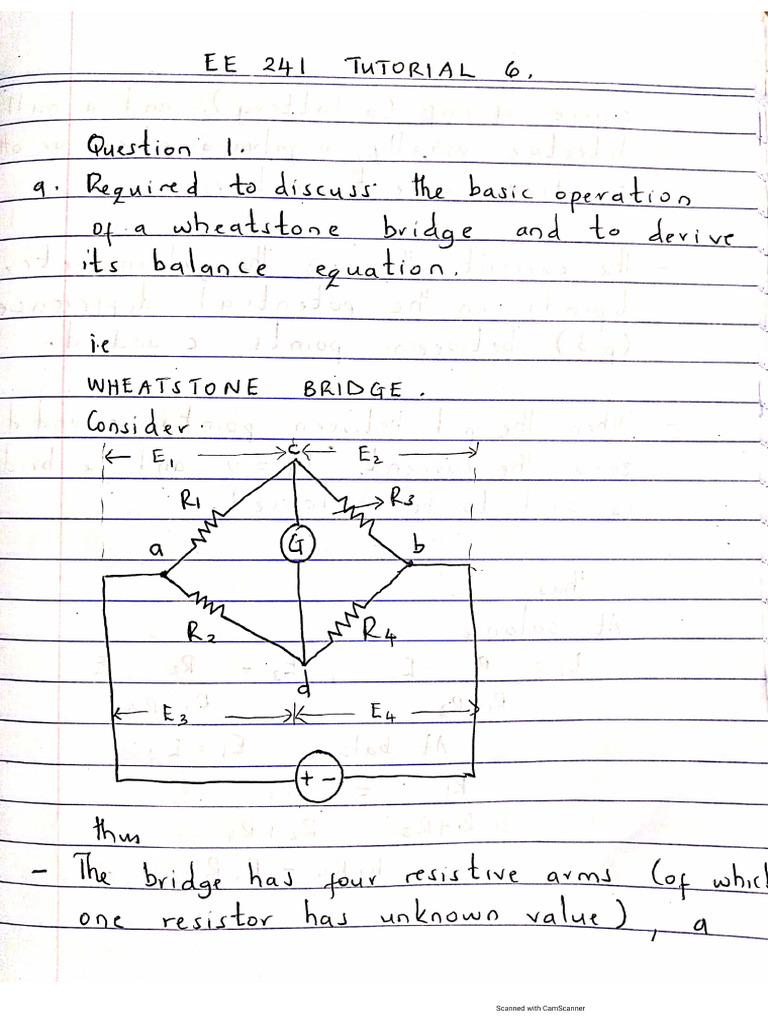 EE 241 TUTORIAL 6.
Question 1.
a. Required to discuss the basic operation
of a wheatstone bridge and to derive
its balance equation.
i.e
WHEATSTONE BRIDGE.
Consider.
E1 c E2
R1 R3
a G b
R2 R4
d
E3 E4
+ -
thus
- The bridge has four resistive arms (of whic
one resistor has unknown value), a
Scanned with CamScanner